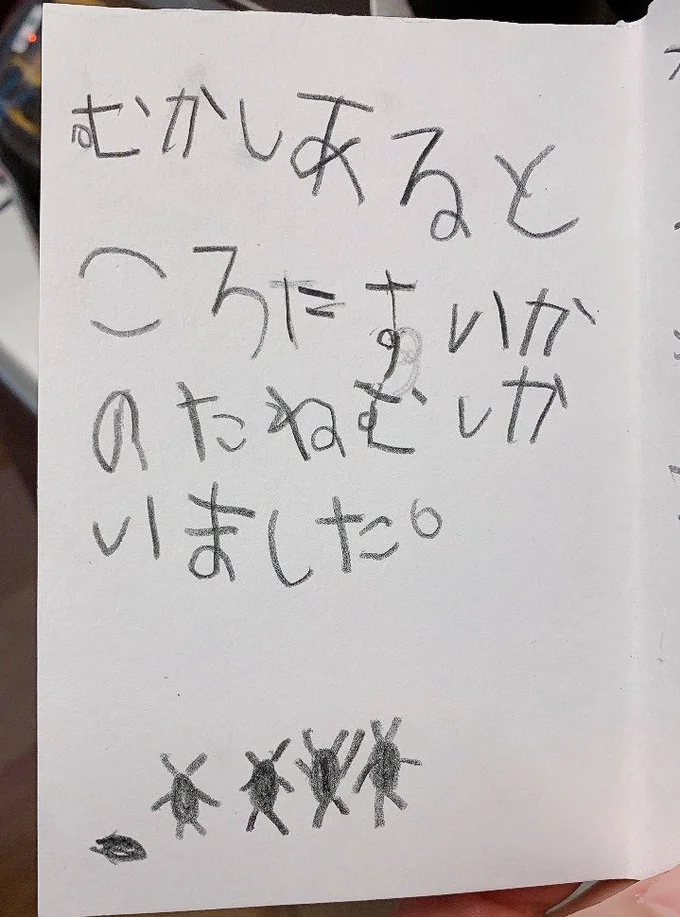 むかしあると
ころにすいか
のたねむしが
いました。